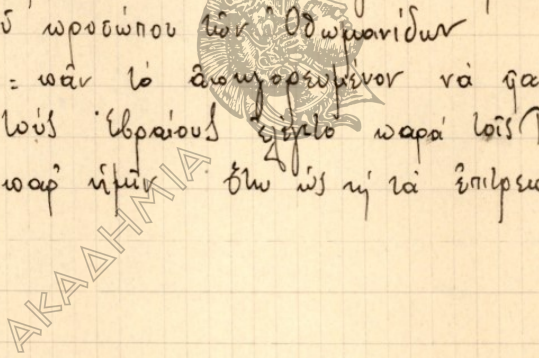 ῦ προσώπου τῶν Ὀθωμανίδων
= πᾶν τὸ ἀπηγορευμένον νὰ φα
τοὺς Ἑβραίους ἐλέγετο παρὰ τοῖς
παρ' ἡμῖν ὡς τὰ ἐπιτρεπ
ΑΚΑΔΗΜΙΑ